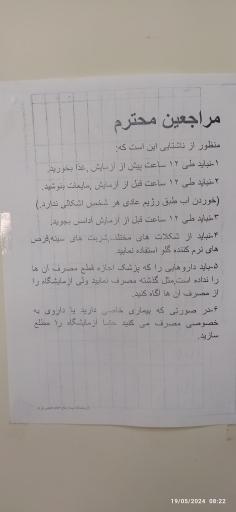 مراجعین محترم
منظور از ناشتایی این است که:
۱-نباید طی ۱۲ ساعت پیش از آزمایش ,غذا بخورید.
۲-نباید طی ۱۲ ساعت قبل از آزمایش ,مایعات بنوشید.
(خوردن آب طبق رژیم عادی هر شخص اشکالی ندارد.)
۳-نباید طی ۱۲ ساعت قبل از آزمایش آدامس بجوید.
۴-نباید از شکلات های مختلف,شربت های سینه,قرص
های نرم کننده گلو استفاده نمایید
۵-باید داروهایی را که پزشک اجازه قطع مصرف آن ها
را نداده است,مثل گذشته مصرف نمایید ولی آزمایشگاه را
از مصرف آن ها آگاه کنید.
۶-در صورتی که بیماری خاصی دارید یا داروی به
خصوصی مصرف می کنید حتما آزمایشگاه را مطلع
سازید.
19/05/2024 08:22